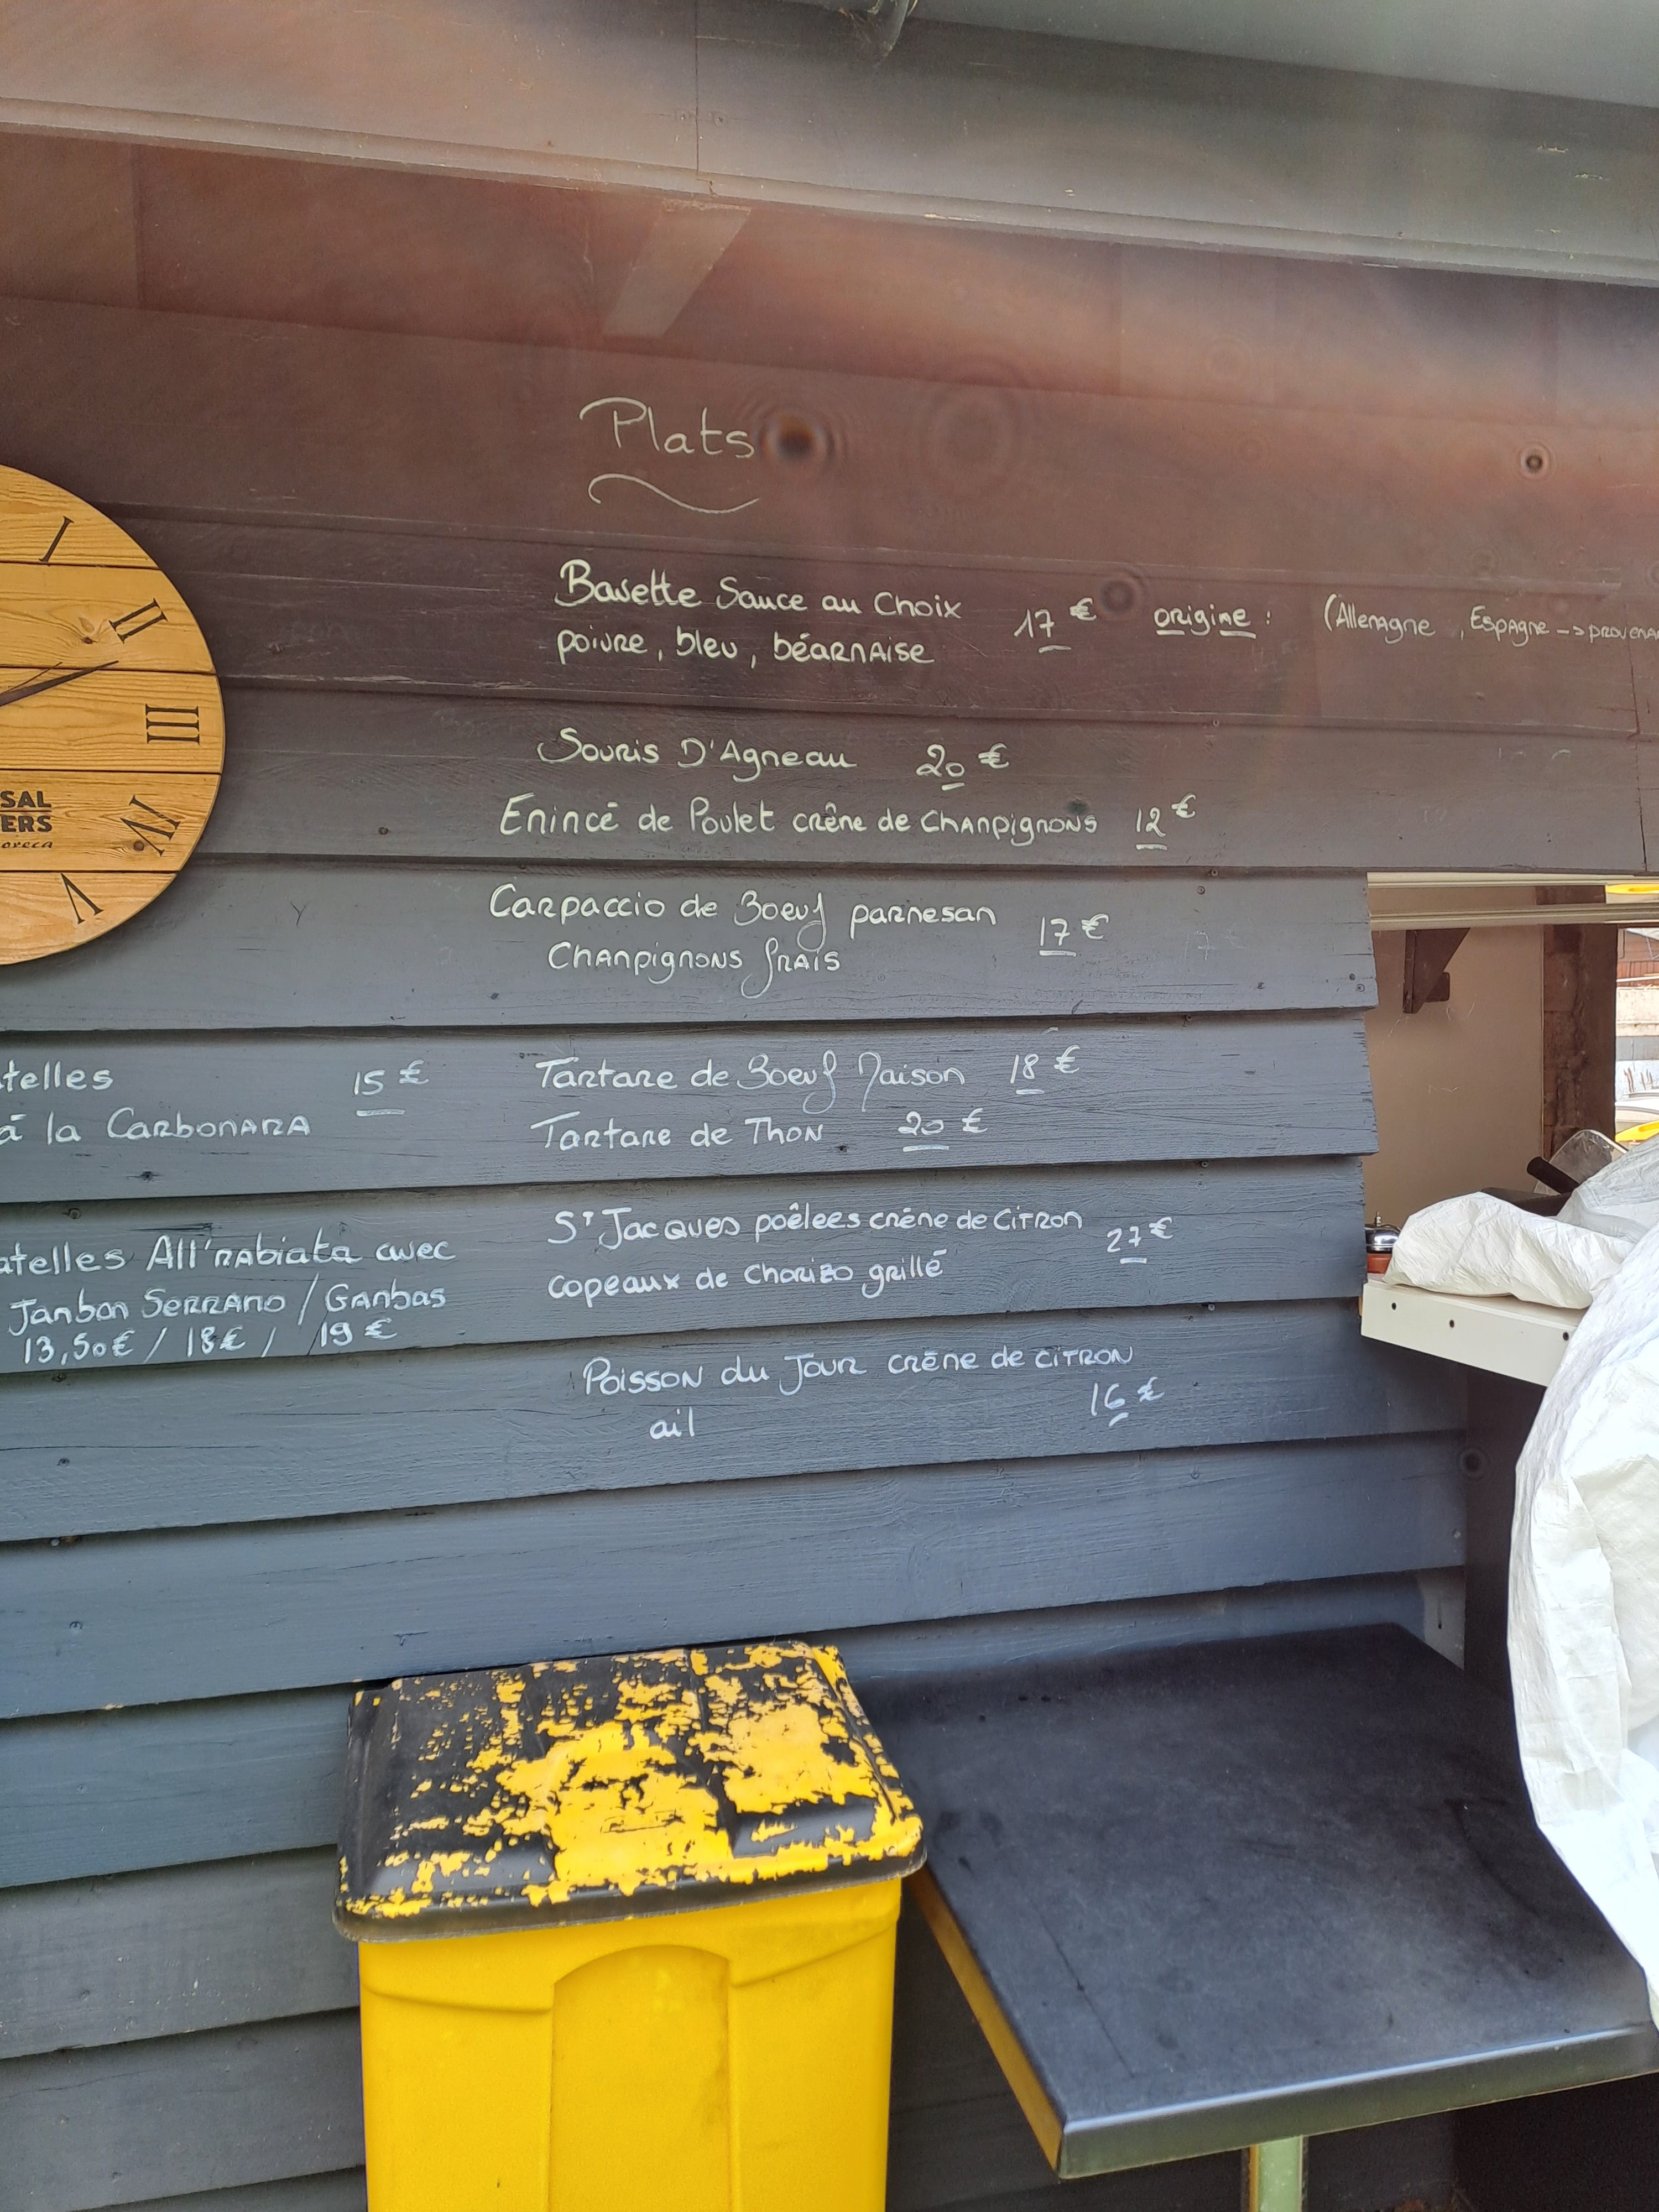 Plats
Bavette Sauce au Choix 17 € origine : (Allemagne , Espagne -->
poivre, bleu, béarnaise
Souris D'Agneau 20 €
Emincé de Poulet crême de Champignons 12 €
Carpaccio de Boeuf parmesan 17 €
Champignons frais
Tartare de Boeuf Maison 18 €
Tartare de Thon 20 €
St Jacques poêlees crème de Citron 27 €
copeaux de Chorizo grillé
Poisson du Jour crème de citron
ail 16 €
telles 15 €
à la Carbonara
atelles All'rabiata avec
Jambon Serrano / Gambas
13,50€ / 18€ / 19 €
I
II
III
IV
V
SAL
ERS
oreca